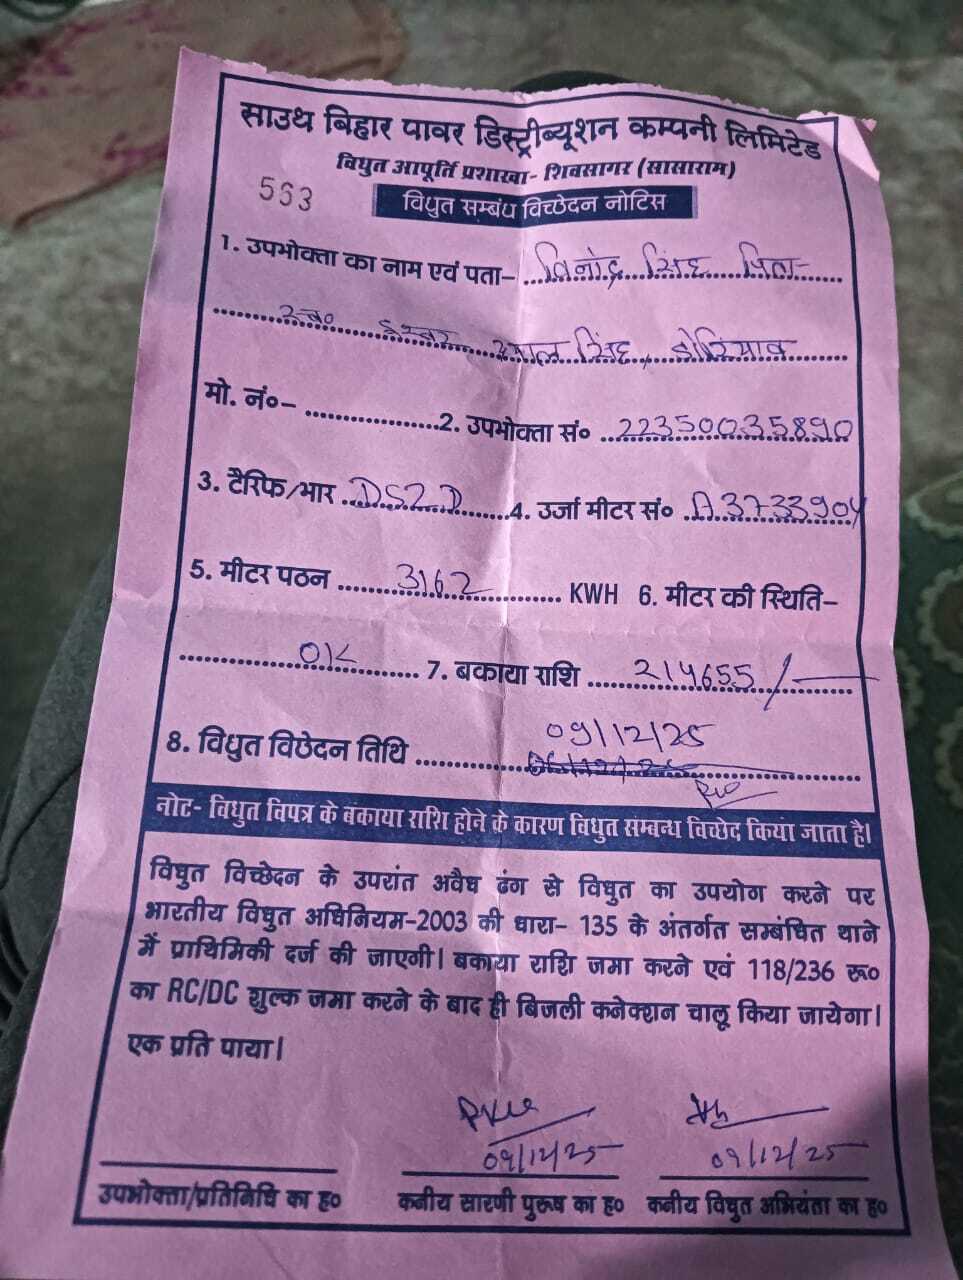 साउथ बिहार पावर डिस्ट्रीब्यूशन कम्पनी लिमिटेड
विधुत आपूर्ति प्रशाखा- शिवसागर (सासाराम)
563
विधुत सम्बंध विच्छेदन नोटिस
1. उपभोक्ता का नाम एवं पता- विनोद सिंह पिता-
स्व० ईश्वर दयाल सिंह,
मो. नं०- ...............2. उपभोक्ता सं० 22350035890
3. टैरिफ/भार DS2D 4. उर्जा मीटर सं० A3733904
5. मीटर पठन 3162 KWH 6. मीटर की स्थिति-
OK 7. बकाया राशि 214655/-
09/12/25
8. विधुत विछेदन तिथि
नोट- विधुत विपत्र के बकाया राशि होने के कारण विधुत सम्बन्ध विच्छेद किया जाता है।
विधुत विच्छेदन के उपरांत अवैध ढंग से विधुत का उपयोग करने पर
भारतीय विधुत अधिनियम-2003 की धारा- 135 के अंतर्गत सम्बंधित थाने
में प्राथिमिकी दर्ज की जाएगी। बकाया राशि जमा करने एवं 118/236 रू०
का RC/DC शुल्क जमा करने के बाद ही बिजली कनेक्शन चालू किया जायेगा।
एक प्रति पाया।
09/12/25 09/12/25
उपभोक्ता/प्रतिनिधि का ह० कनीय सारणी पुरूष का ह० कनीय विधुत अभियंता का ह०